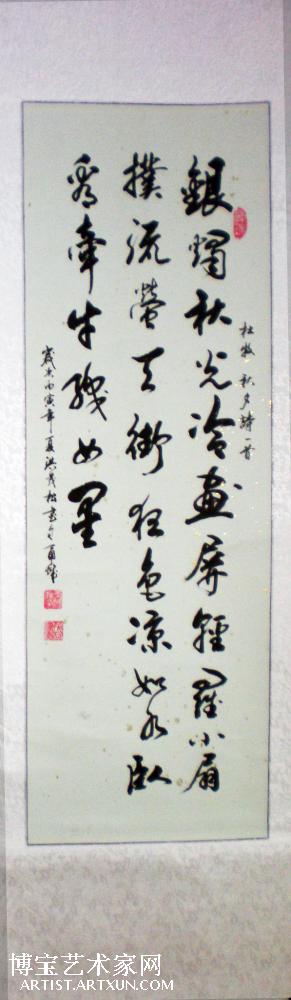 杜牧 秋夕詩一首
銀燭秋光冷畫屏輕羅小扇
撲流螢天街夜色涼如水臥
看牽牛織女星
歲次丙寅年夏洪茂松書
博宝艺术家网
ARTIST.ARTXUN.COM